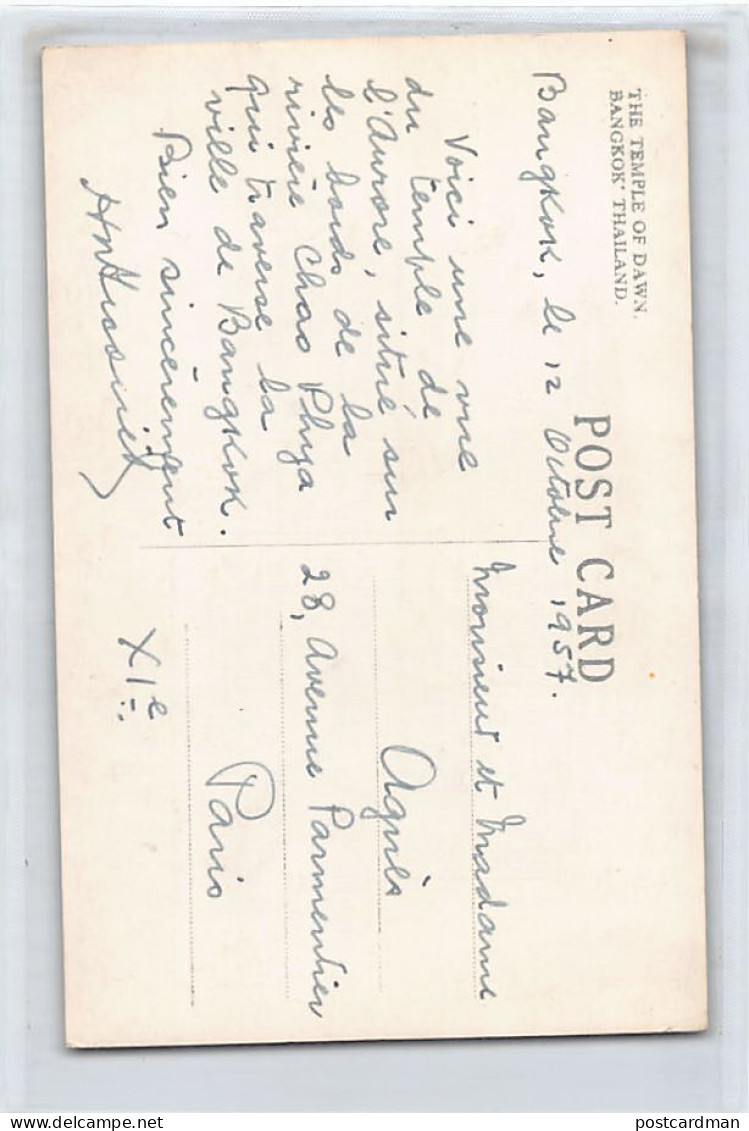 THE TEMPLE OF DAWN.
BANGKOK' THAILAND.
POST CARD
Bangkok, le 12 Octobre 1957.
Voici une vue
du temple de
l'Aurore, situé sur
les bords de la
rivière Chao Phya
qui traverse la
ville de Bangkok.
Bien sincèrement
Monsieur et Madame
Agnès
28, Avenue Parmentier
Paris
XIe
postcardman